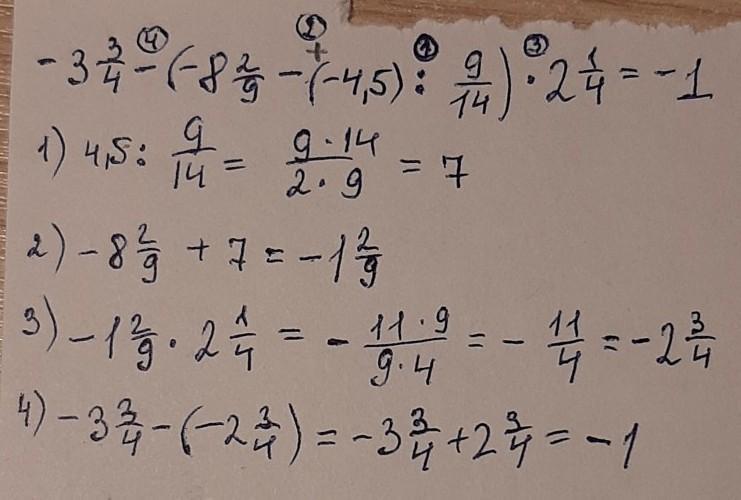 -3 3/4 - (-8 2/9 - (-4,5) : 9/14) · 2 1/4 = -1
1) 4,5 : 9/14 = 9·14/2·9 = 7
2) -8 2/9 + 7 = -1 2/9
3) -1 2/9 · 2 1/4 = - 11·9/9·4 = - 11/4 = -2 3/4
4) -3 3/4 - (-2 3/4) = -3 3/4 + 2 3/4 = -1